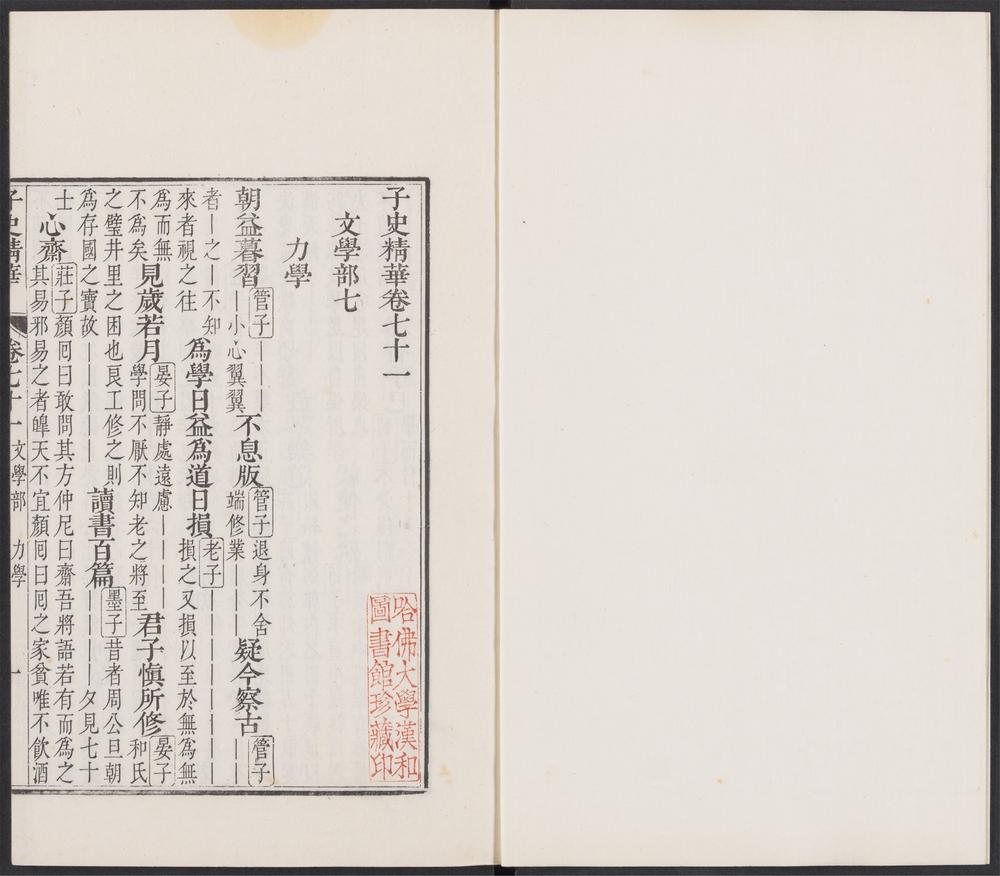 子史精華卷七十一
文學部七
力學
朝益暮習管子————
—小心翼翼不息版管子退身不舍
端修業———疑今察古管子
——
者—之—不知
來者視之往為學日益為道日損老子————————
損之又損以至於無為無
為而無
不為矣見歲若月晏子靜處遠慮————
學問不厭不知老之將至君子慎所修晏子
和氏
之璧井里之困也良工修之則
為存國之寶故—————讀書百篇墨子昔者周公旦朝
————夕見七十
士
心齋莊子顏囘曰敢問其方仲尼曰齋吾將語若有而為之
其易邪易之者皥天不宜顏囘曰囘之家貧唯不飲酒
子史精華
卷七十一
文學部
力學
一
哈佛大學漢和
圖書館珍藏印